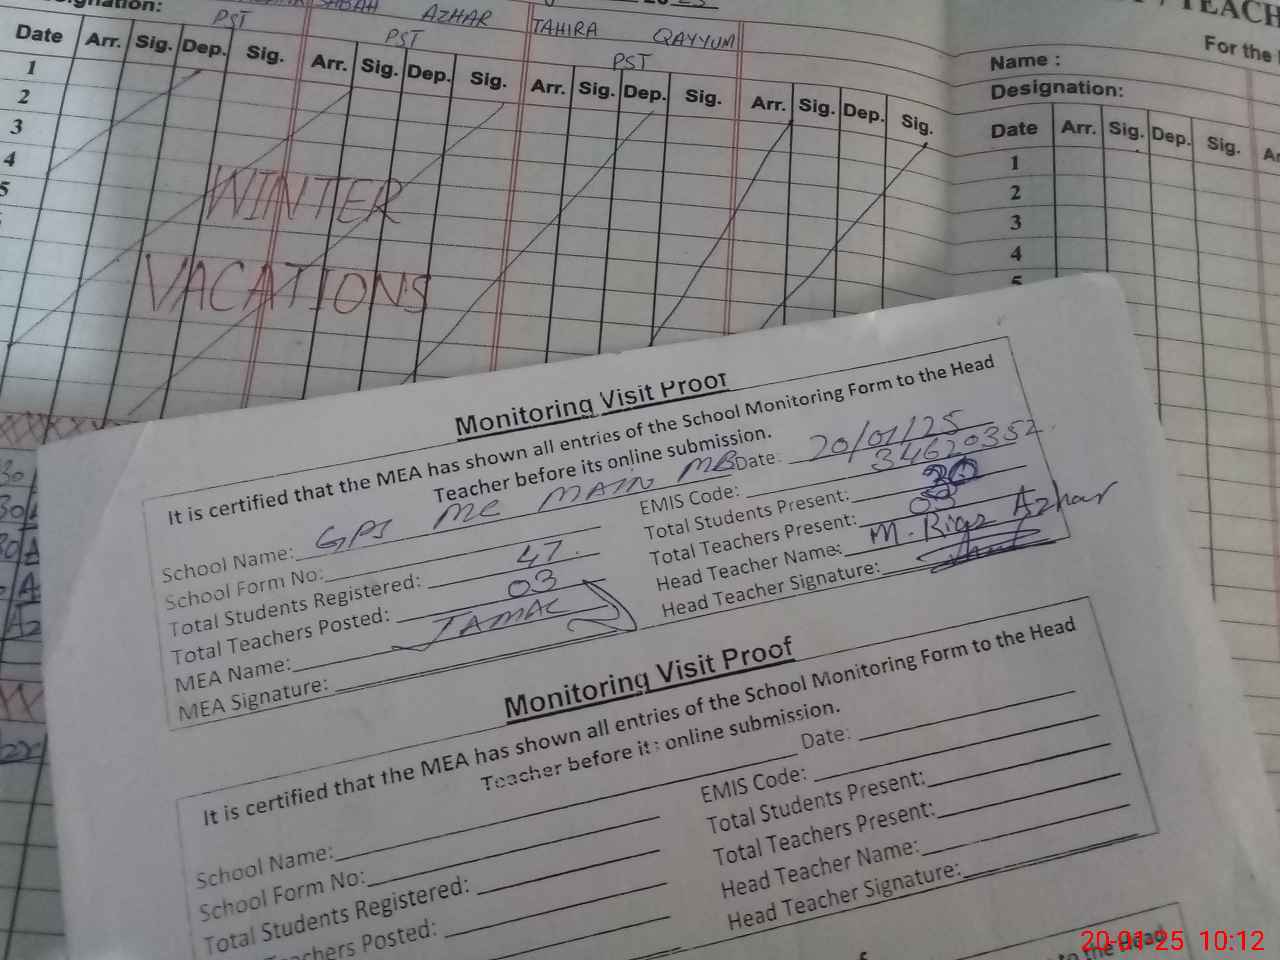 SABAH AZHAR TAHIRA QAYYUM
PST PST PST
Date Arr. Sig. Dep. Sig. Arr. Sig. Dep. Sig. Arr. Sig. Dep. Sig. Arr. Sig. Dep. Sig.
1
2
3
4
5
WINTER
VACATIONS
For the
Name :
Designation:
Date Arr. Sig. Dep. Sig.
1
2
3
4
5
Monitoring Visit Proof
It is certified that the MEA has shown all entries of the School Monitoring Form to the Head
Teacher before its online submission.
School Name: GPS MC MAIN MB Date: 20/01/25
School Form No: EMIS Code: 34620352
Total Students Registered: 47 Total Students Present: 30
Total Teachers Posted: 03 Total Teachers Present: 03
MEA Name: JAMAL Head Teacher Name: M. Riaz Azhar
MEA Signature: Head Teacher Signature:
Monitoring Visit Proof
It is certified that the MEA has shown all entries of the School Monitoring Form to the Head
Teacher before its online submission.
School Name: Date:
School Form No: EMIS Code:
Total Students Registered: Total Students Present:
Teachers Posted: Total Teachers Present:
Head Teacher Name:
Head Teacher Signature:
to the Head
20-01-25 10:12